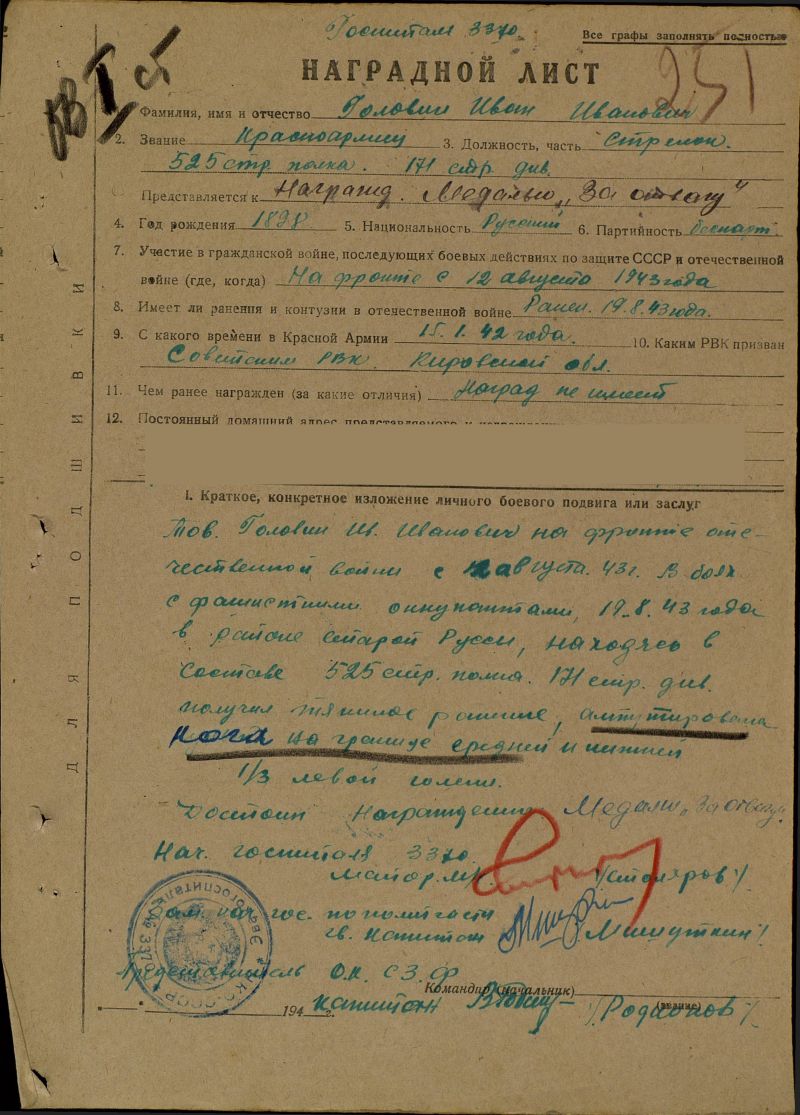 Госпиталь 3370.
Все графы заполнять полностью
НАГРАДНОЙ ЛИСТ
251
Фамилия, имя и отчество Головин Иван Иванович
2. Звание Красноармеец 3. Должность, часть Стрелок.
525 стр полка. 171 стр. див.
Представляется к Награжд. Медалью „За отвагу"
4. Год рождения 1898 5. Национальность Русский 6. Партийность беспарт.
7. Участие в гражданской войне, последующих боевых действиях по защите СССР и отечественной
войне (где, когда) На фронте с 12 августа 1943 года
8. Имеет ли ранения и контузии в отечественной войне Ранен. 19.8.43 года.
9. С какого времени в Красной Армии 15.1.42 года. 10. Каким РВК призван
Советским РВК. Кировской обл.
11. Чем ранее награжден (за какие отличия) Наград не имеет
12. Постоянный домашний адрес представляемого к награждению
I. Краткое, конкретное изложение личного боевого подвига или заслуг
Тов. Головин И. Иванович на фронте оте-
чественной войны с августа. 43 г. В боях
с фашисткими оккупаттами, 19.8.43 года
в районе Старой Руссы, находясь в
Составе 525 стр. полка. 171 стр. див.
получил тяжилое ранение, ампутирована
нога на границе средней и нижней
1/3 левой голени.
Достоин Награждения Медали „За отвагу"
Нач. госпиталя 3370.
Майор. М/с /Столяров/
Зам. нач. гос. по политчасти
гв. Капитан /Мишуткин/
Представитель О.К. С.З.Ф
Командир (начальник)
194 г. Капитан /Родионов/
(звание)
Для подшивки